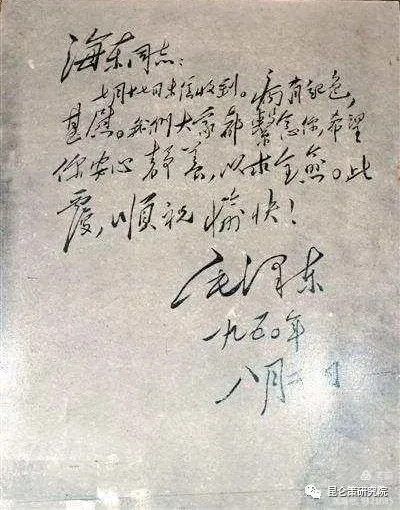 海东同志：
七月十七日来信收到。病有起色，
甚慰。我们大家都繫念你，希望
你安心静养，以求全愈。此
覆，順祝愉快！
毛泽东
一九五〇年
八月二日
昆仑策研究院